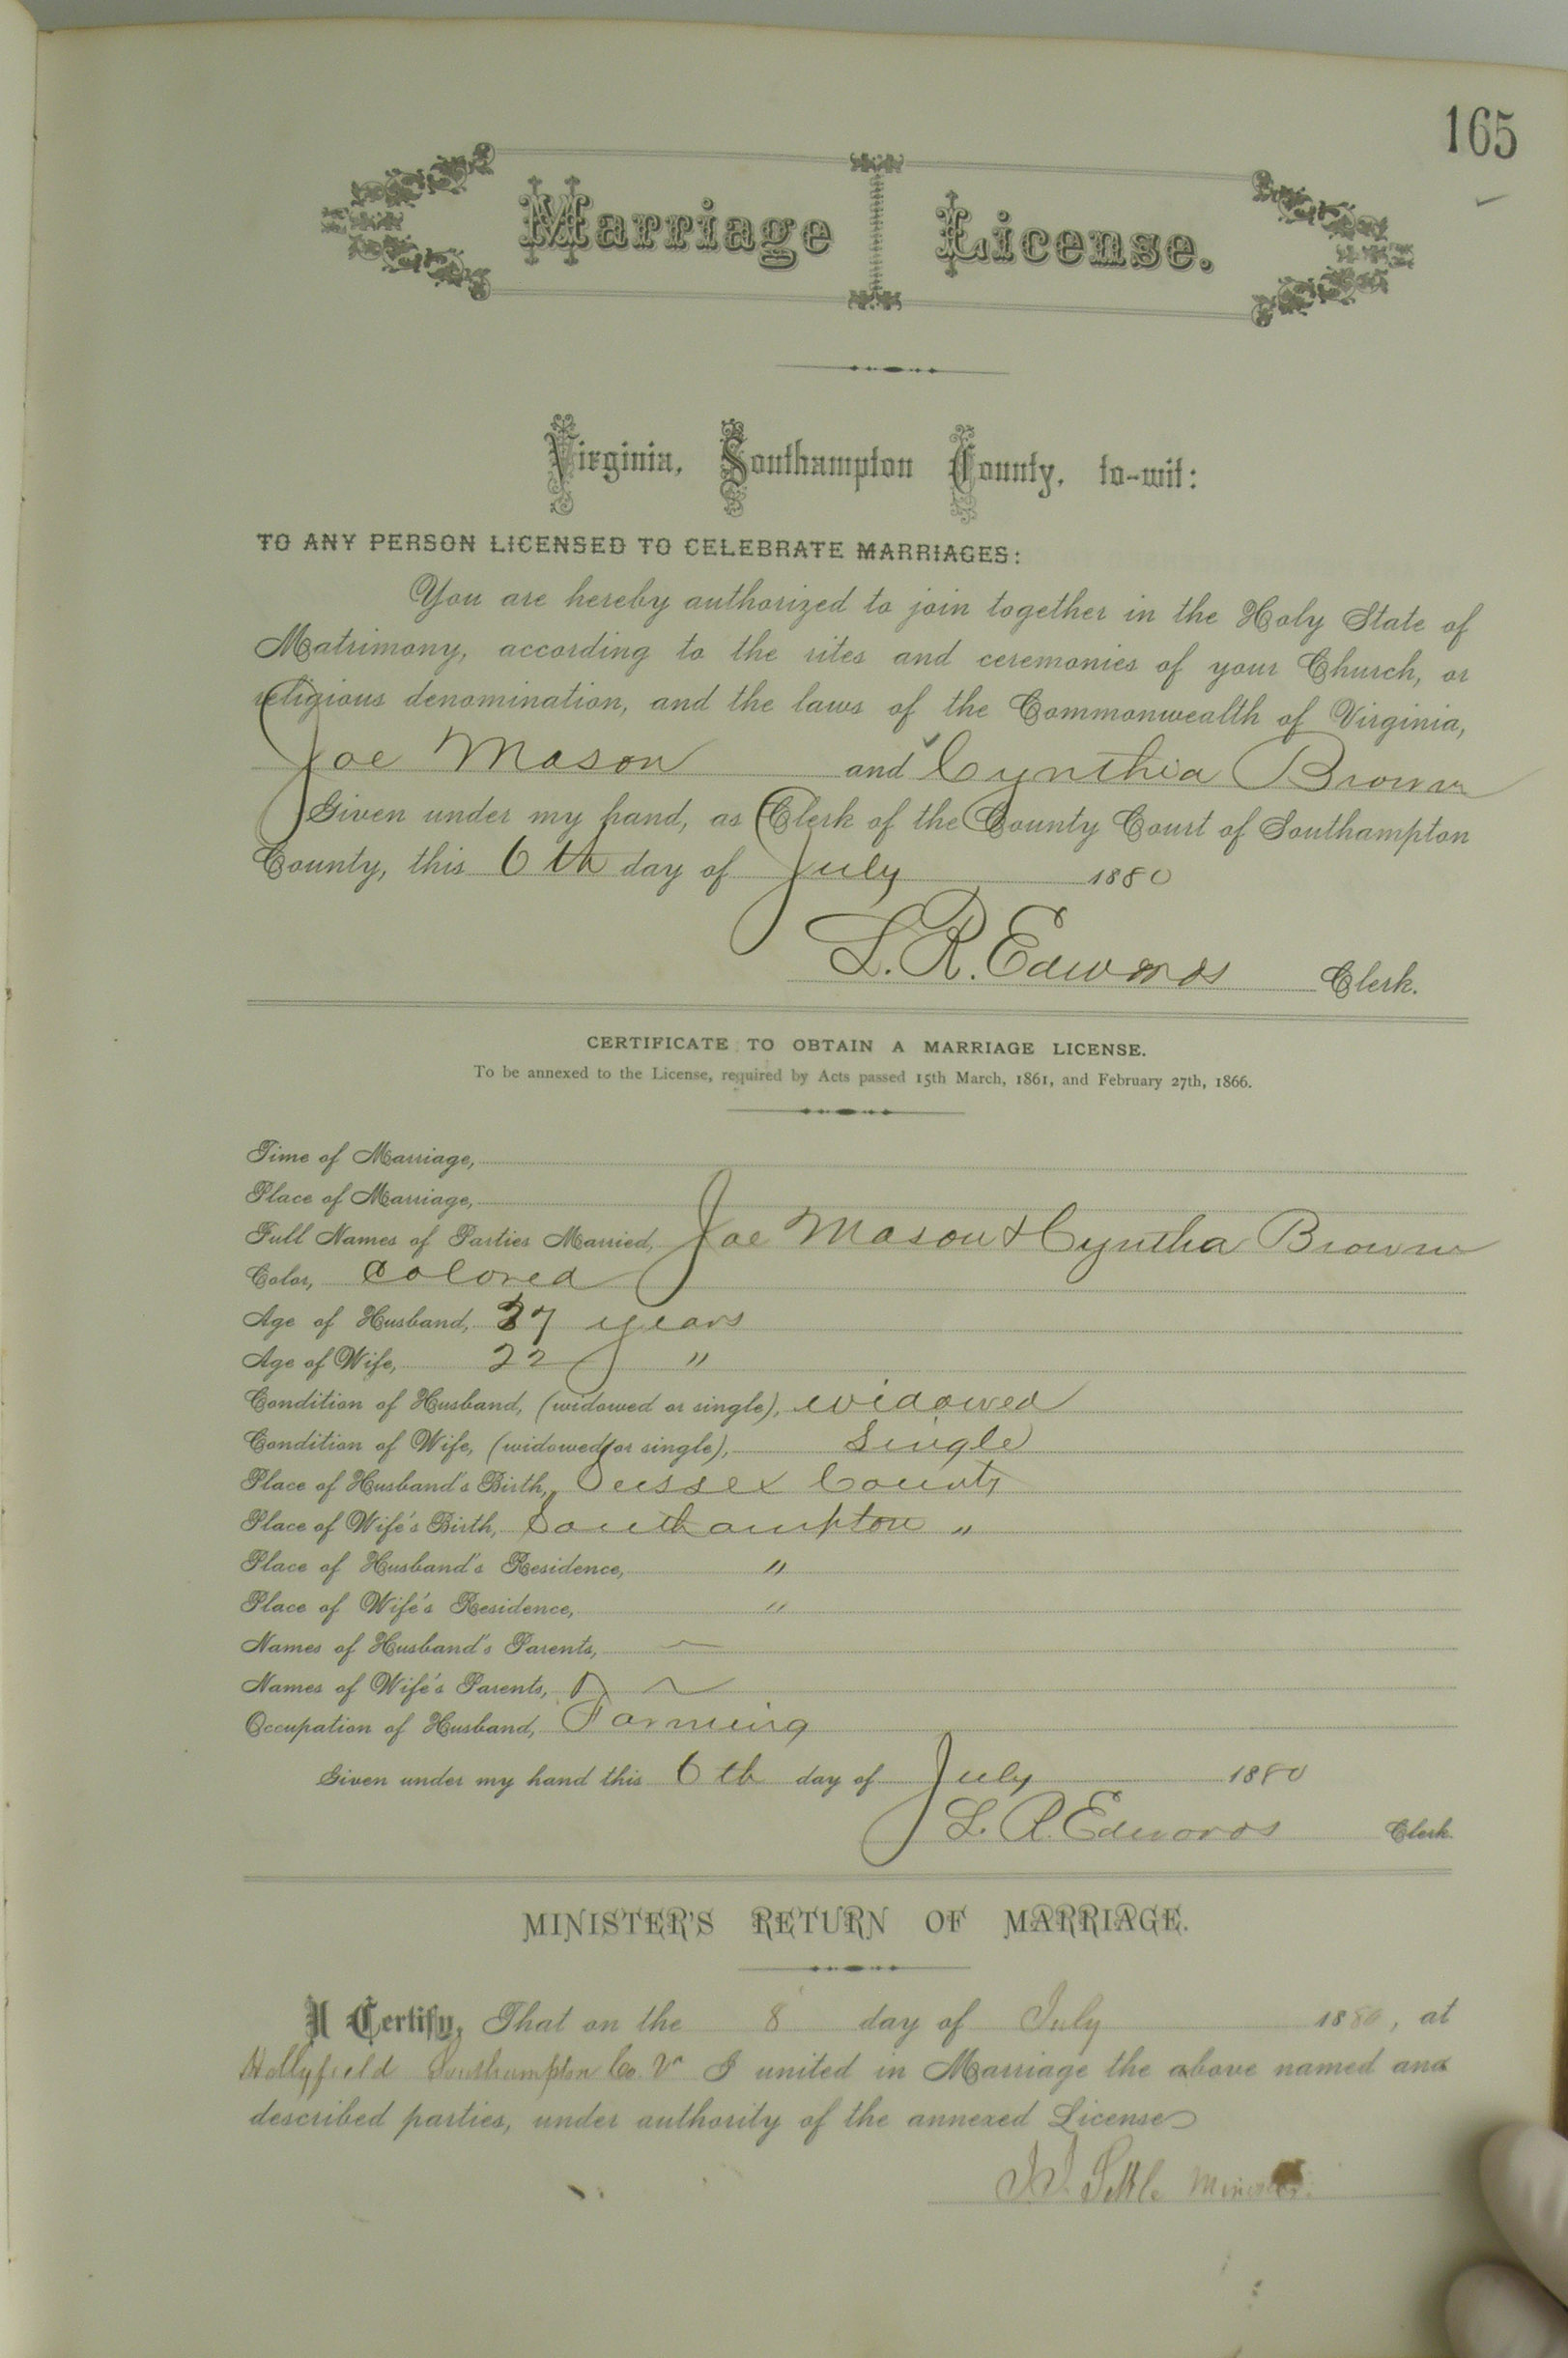 165
Marriage License.
Virginia, Southampton County, to-wit:
TO ANY PERSON LICENSED TO CELEBRATE MARRIAGES:
You are hereby authorized to join together in the Holy State of
Matrimony, according to the rites and ceremonies of your Church, or
religious denomination, and the laws of the Commonwealth of Virginia,
Joe Mason and Cynthia Brown
Given under my hand, as Clerk of the County Court of Southampton
County, this 6th day of July 1880
L. R. Edwards Clerk.
CERTIFICATE TO OBTAIN A MARRIAGE LICENSE.
To be annexed to the License, required by Acts passed 15th March, 1861, and February 27th, 1866.
Time of Marriage,
Place of Marriage,
Full Names of Parties Married, Joe Mason & Cynthia Brown
Color, Colored
Age of Husband, 37 years
Age of Wife, 22 "
Condition of Husband, (widowed or single), widowed
Condition of Wife, (widowed or single), Single
Place of Husband's Birth, Sussex County
Place of Wife's Birth, Southampton "
Place of Husband's Residence, "
Place of Wife's Residence, "
Names of Husband's Parents,
Names of Wife's Parents,
Occupation of Husband, Farming
Given under my hand this 6th day of July 1880
L. R. Edwards Clerk.
MINISTER'S RETURN OF MARRIAGE.
I Certify, That on the 8 day of July 1880, at
Hollyfield Southampton Co. Va I united in Marriage the above named and
described parties, under authority of the annexed License
Settle Minister